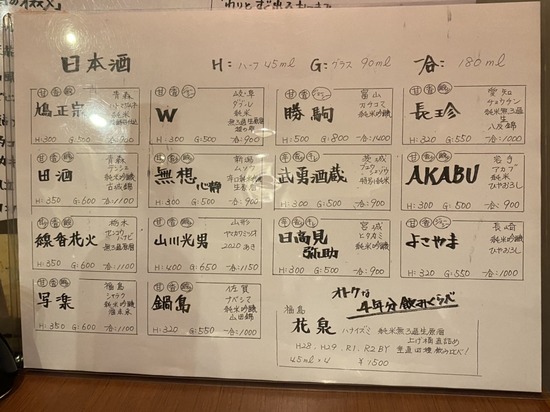 日本酒 H:ハーフ 45ml G:グラス 90ml 合:180ml
鳩正宗
青森
純米
H:300 G:500 合:900
W
岐阜
ダブル
純米
無ろ過生原酒
H:300 G:500 合:900
勝駒
富山
カチコマ
純米吟醸
H:500 G:800 合:1400
長珍
愛知
チョウチン
純米
無ろ過生
八反錦
H:300 G:500 合:900
田酒
青森
デンシュ
純米吟醸
古城錦
H:350 G:600 合:1100
無想
心静
新潟
ムソウ
生原酒
H:300 G:500 合:900
武勇酒蔵
茨城
特別純米
H:300 G:500 合:900
AKABU
岩手
アカブ
純米
ひやおろし
H:320 G:550 合:1000
線香花火
栃木
センコウ
ハナビ
無ろ過原酒
H:350 G:600 合:1100
山川光男
山形
ヤマカワミツオ
2020 あき
H:400 G:650 合:1150
日高見
弥助
宮城
ヒタカミ
純米吟醸
H:320 G:550 合:1000
よこやま
長崎
純米吟醸
ひやおろし
H:320 G:550 合:1000
写楽
福島
シャラク
純米吟醸
H:350 G:600 合:1100
鍋島
佐賀
ナベシマ
純米吟醸
山田錦
H:320 G:550 合:1000
オトクな
4年分飲みくらべ
福島
花泉 ハナイズミ 純米無ろ過生原酒
上げ桶直詰め
H28、H29、R1、R2BY 垂直四種飲み比べ!
45ml×4 ¥1500